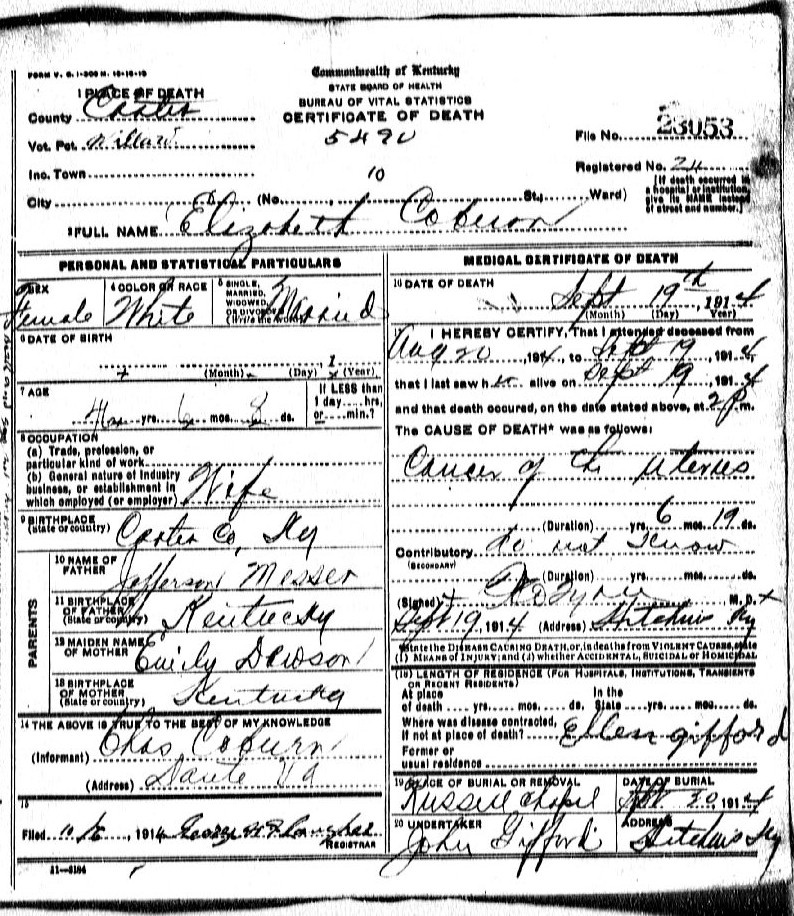 FORM V. S. 1-300 M. 10-16-13
Commonwealth of Kentucky
STATE BOARD OF HEALTH
BUREAU OF VITAL STATISTICS
CERTIFICATE OF DEATH
5490
1 PLACE OF DEATH
County Carter
Vot. Pct. Willard
Inc. Town
10
City (No. St., Ward)
File No. 23053
Registered No. 24
[If death occurred in a hospital or institution, give its NAME instead of street and number.]
2 FULL NAME Elizabeth Coburn
PERSONAL AND STATISTICAL PARTICULARS
3 SEX Female
4 COLOR OR RACE White
5 SINGLE, MARRIED, WIDOWED OR DIVORCED (Write the word) Married
6 DATE OF BIRTH
(Month) (Day) 1 (Year)
7 AGE
yrs. 6 mos. 8 ds.
If LESS than 1 day....hrs, or....min.?
8 OCCUPATION
(a) Trade, profession, or particular kind of work
(b) General nature of industry business, or establishment in which employed (or employer) Wife
9 BIRTHPLACE (State or country) Carter Co, Ky
PARENTS
10 NAME OF FATHER Jefferson Messer
11 BIRTHPLACE OF FATHER (State or country) Kentucky
12 MAIDEN NAME OF MOTHER Emily Dawson
13 BIRTHPLACE OF MOTHER (State or country) Kentucky
14 THE ABOVE IS TRUE TO THE BEST OF MY KNOWLEDGE
(Informant) Chas Coburn
(Address) Dante Va
15
Filed 1914 REGISTRAR
11—3184
MEDICAL CERTIFICATE OF DEATH
16 DATE OF DEATH
Sept 19th, 1914
(Month) (Day) Year)
I HEREBY CERTIFY, That I attended deceased from
Aug 20, 1914, to Sept 19, 1914
that I last saw her alive on Sept 19, 1914
and that death occured, on the date stated above, at 2 P.m.
The CAUSE OF DEATH* was as follows:
Cancer of the Uterus
(Duration) yrs. 6 mos. 19 ds.
Contributory Do not Know
(SECONDARY)
(Duration) yrs. mos. ds.
(Signed) M. D.
Sept 19, 1914 (Address) Hitchins Ky
*State the DISEASE CAUSING DEATH, or, in deaths from VIOLENT CAUSES, state (1) MEANS OF INJURY; and (2) whether ACCIDENTAL, SUICIDAL or HOMICIDAL
(18) LENGTH OF RESIDENCE (FOR HOSPITALS, INSTITUTIONS, TRANSIENTS OR RECENT RESIDENTS)
At place of death yrs. mos. ds. In the State yrs. mos. ds.
Where was disease contracted, if not at place of death? Ellen gifford
Former or usual residence
19 PLACE OF BURIAL OR REMOVAL Russell Chapel
DATE OF BURIAL Sept. 20 1914
20 UNDERTAKER John Gifford
ADDRESS Hitchins Ky